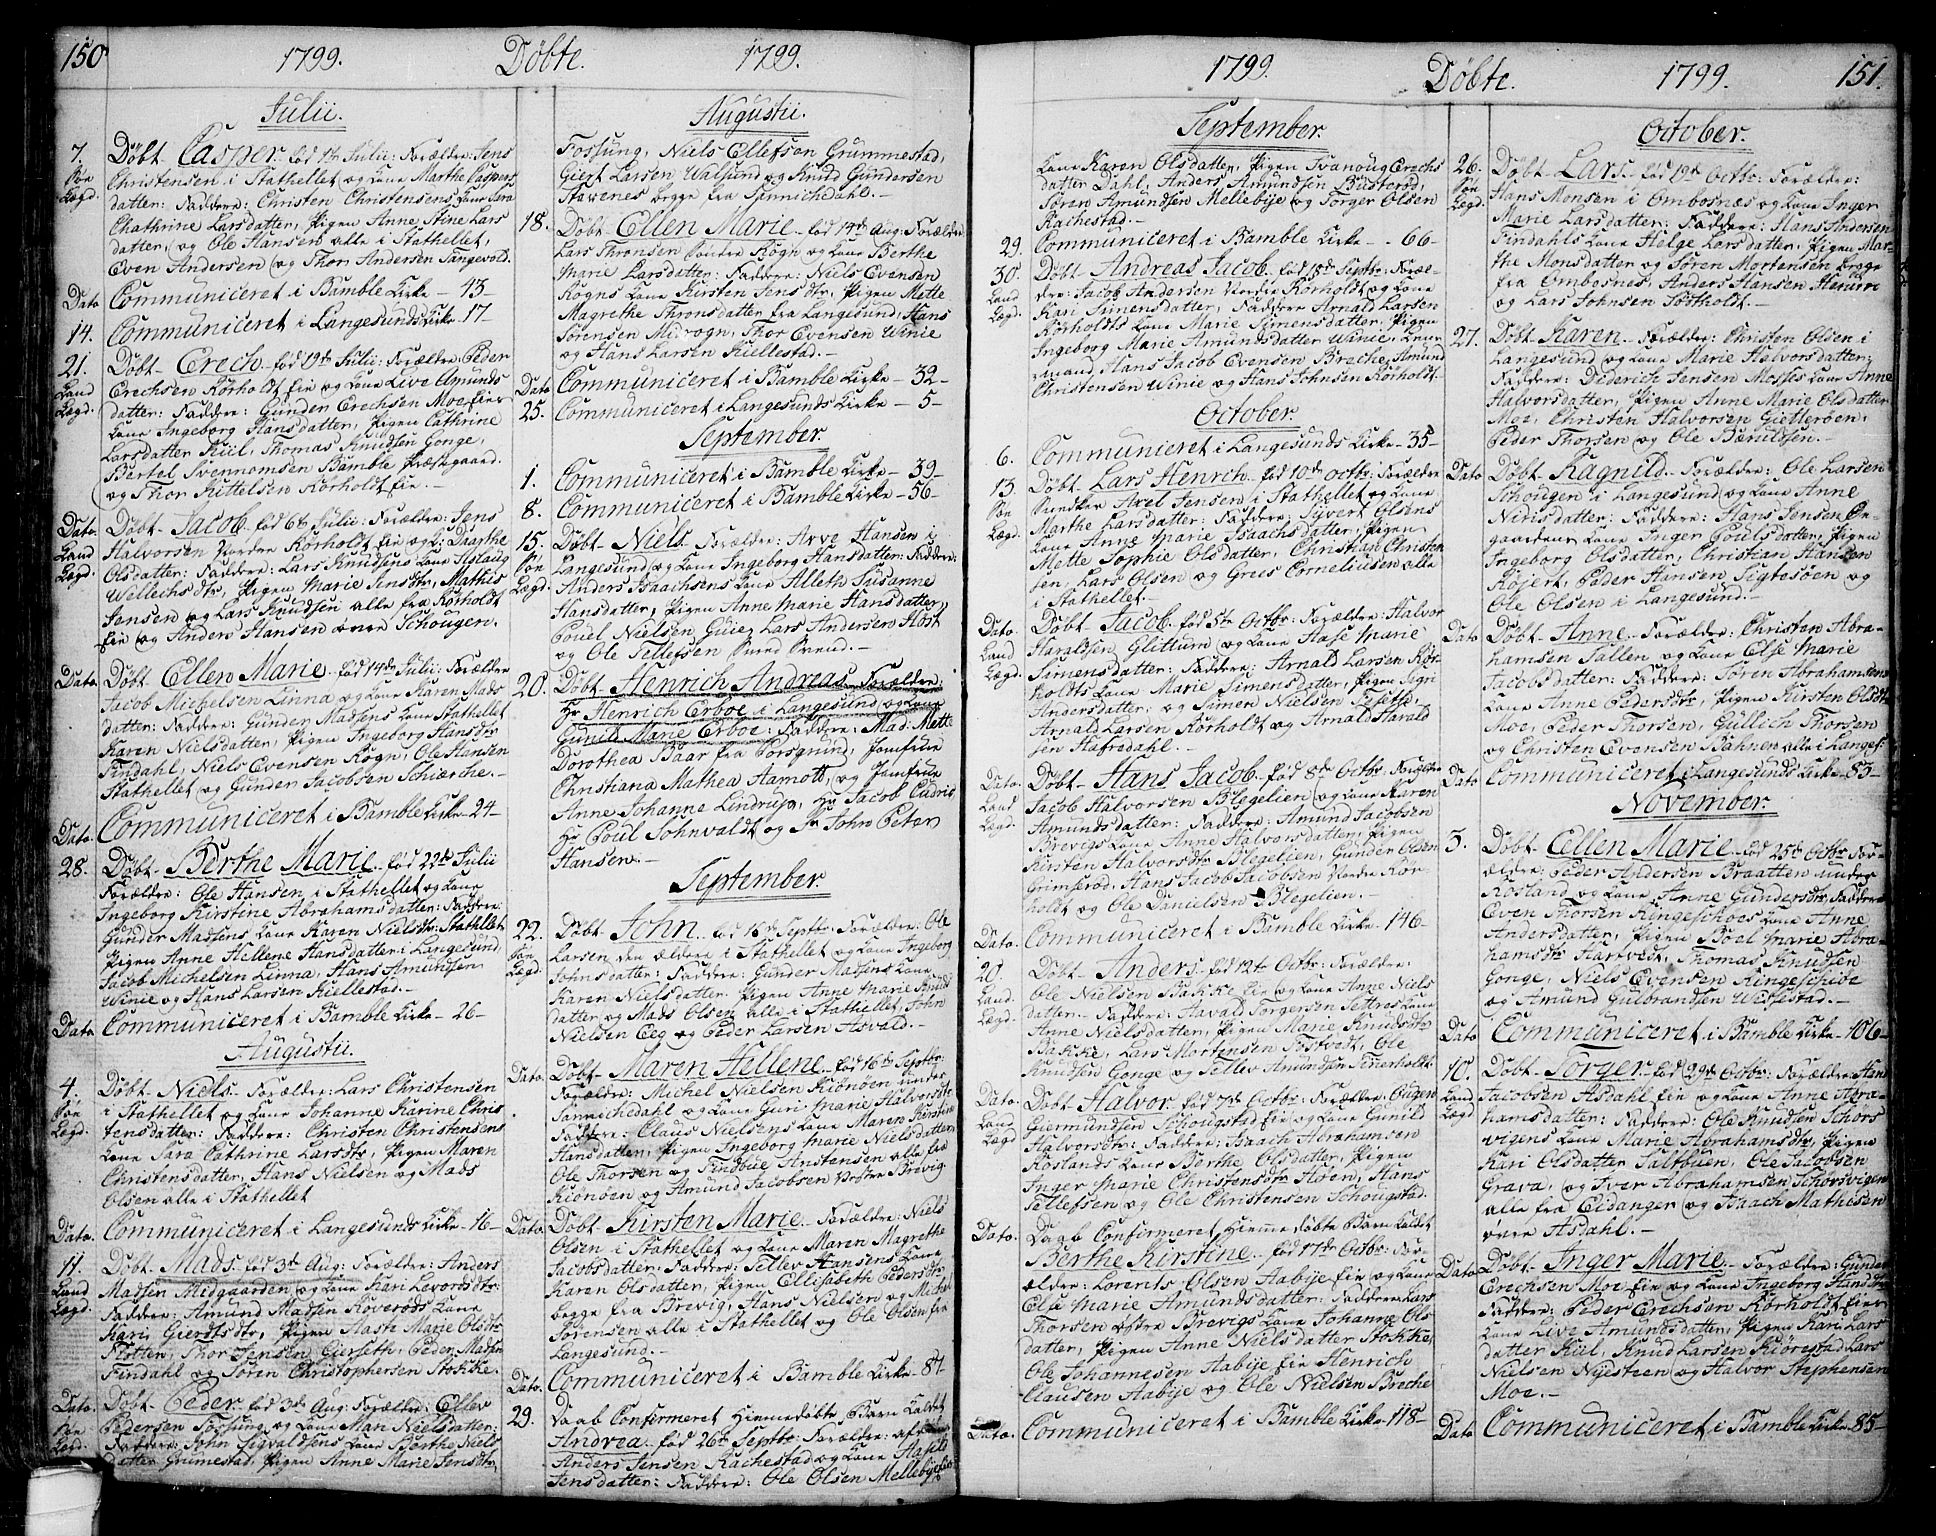 150
1799. Døbte. 1799.
Julii.
7. Døbt Casper fød 1ste Julii: Forældre: Jens
Søe Lægd. Christensen i Stathellet og Kone Marthe Caspers
datter: Faddere: Christen Christensens Kone Sara
Chathrine Larsdatter, Pigen Anne Stine Lars
datter, og Ole Hansen alle i Stathellet,
Even Andersen og Thor Andersen Tangevald.
Dato Communiceret i Bamble Kirke - 13 -
14. Communiceret i Langesunds Kirke 17 -
21. Døbt Erech fød 19de Julii: Forældre: Peder
Land Lægd. Erechsen Rørholdt eie og Kone Live Amunds
datter: Faddere: Gunder Erechsen Moe eier
Kone Ingeborg Hansdatter, Pigen Cathrine
Larsdatter Kiil, Thomas Knudsen Gonge,
Bertel Svennomsen Bamble Præstegaard.
og Thor Kittelsen Rørholdt eie. -
Dato Døbt Jacob fød 6te Julii: Forældre: Jens
Land Lægd. Halvorsen Vordre Rørholdt eie og K: Daarthe
Olsdatter: Faddere: Lars Knudsens Kone Aslaug
Willeichsdtr, Pigen Marie Jensdtr, Mathis
Jensen og Lars Knudsen alle fra Rørholdt
eie og Anders Hansen øvre Schougen.
Dato. Døbt Ellen Marie fød 14de Julii: Forældre
Jacob Michelsen Linna og Kone Karen Mads
datter: Faddere: Gunder Madsens Kone Stathellet
Karen Nielsdatter, Pigen Ingeborg Hansdtr
Findahl, Niels Evensen Rogn, Ole Hansen
Stathellet og Gunder Jacobsen Schierche.
Dato. Communiceret i Bamble Kirke - 24 -
28. Døbt Berthe Marie fød 22de Julii
Forældre: Ole Hansen i Stathellet og Kone
Ingeborg Kirstine Abrahamsdatter: Faddere:
Gunder Madsens Kone Karen Nielsdtr: Stathellet
Pigen Anne Hellene Hansdatter i Langesund
Jacob Michelsen Linna, Hans Amundsen
Winie og Hans Larsen Kiellestad. -
Dato Communiceret i Bamble Kirke - 26 -
Augustii.
4. Døbt Niels Forældre: Lars Christensen
Søe Lægd. i Stathellet og Kone Johanne Karine Chris
tensdatter: Faddere: Christen Christensens
Kone Sara Cathrine Larsdtr, Pigen Maren
Christensdatter, Hans Nielsen og Mads
Olsen alle i Stathellet
Dato. Communiceret i Langesunds Kirke - 16 -
11. Døbt Mads fød 3de Aug: Forældre: Anders
Land Lægd. Madsen Midgaarden og Kone Kari Levordsdtr:
Faddere: Amund Madsen Roverods Kone
Kari Gierdtsdtr, Pigen Aaste Marie Olsdtr
Findahl, Thor Jensen Gierseth, Peder Madsen
Findahl og Søren Christophersen Stokke.
Dato. Døbt Peder fød 3de Aug: Forældre: Ellev
Søe Lægd. Pedersen Fossung og Kone Mari Nielsdatter:
Faddere: John Sigvaldsens Kone Berthe Niels
datter Grumestad, Pigen Anne Marie Jensdtr,
Augustii.
Fossung, Niels Ellefson Grummestad,
Giert Larsen Walsund og Knud Gundersen
Stavenes begge fra Sannichedahl.
18. Døbt Ellen Marie fød 14de Aug: Forældre
Lars Thronsen Søndre Rogn og Kone Berthe
Marie Larsdatter: Faddere: Niels Evensen
Rogns Kone Kirsten Jensdtr, Pigen Mette
Magrethe Thronsdatter fra Langesund, Hans
Sørensen Midrogn, Thor Evensen Winie
og Hans Larsen Kiellestad. -
Dato Communiceret i Bamble Kirke - 32 -
25. Communiceret i Langesunds Kirke - 5 -
September.
1. Communiceret i Bamble Kirke - 39 -
8. Communiceret i Bamble Kirke - 56 -
15. Døbt Niels Forældre: Arve Hansen i
Søe Lægd. Langesund og Kone Ingeborg Hansdatter: Faddere:
Anders Isaachsens Kone Alleth Susanne
Hansdatter, Pigen Anne Marie Hansdatter
Poul Nielsen Guie, Lars Andersen Høst
og Ole Tellefsen
20. Døbt Henrich Andreas Forældre:
Hr Henrich Erboe i Langesund og Kone
Gunild Marie Erboe: Faddere: Mad. Mette
Dorothea Baar fra Porsgrund, Jomfrue
Christiana Mathea Aamodt, og Jomfrue
Anne Johanne Lindrup, Hr Jacob Cudrio
Hr Poul Johnvaldt og Sr John Peter
Hansen: -
September.
22. Døbt John fød 15de Septbr: Forældre: Ole
Søe Lægd. Larsen den ældere i Stathellet og Kone Ingeborg
Johnsdatter: Faddere: Gunder Madsens Kone
Karen Nielsdatter, Pigen Anne Marie Knuds
datter og Mads Olsen alle i Stathellet, John
Nielsen Eeg og Peder Larsen Asvald. -
Dato. Døbt Maren Hellene fød 16de Septbr:
Forældre: Michel Nielsen Kionøen under
Sannichedahl og Kone Guri Marie Halvorsdtr
Faddere: Claus Nielsens Kone Maren Kirstine
Hansdatter, Pigen Ingeborg Marie Nielsdatter
Ole Thorsen og Findbue Anstensen alle fra
Kionøen og Amund Jacobsen Vestre Brevig
Dato. Døbt Kirsten Marie Forældre: Niels
Olsen i Stathellet og Kone Maren Magrethe
Jacobsdatter: Faddere: Tellev Hansens Kone
Karen Olsdatter, Pigen Ellisabeth Pedersdtr
begge fra Brevig, Hans Nielsen og Michel
Sørensen alle i Stathellet og Ole Olsen fra
Langesund. -
Dato. Communiceret i Bamble Kirke - 84 -
29. Daab Confirmeret Hiemmedøbte Barn Kaldet
Andrea fød 26de Septbr: Forældre: afr
Anders Jensen Rachestad og Kone Haseld
Jensdatter: Faddere: Ole Olsen Mellebye
1799. Døbte. 1799. 151.
September.
Kone Karen Olsdatter, Pigen Tvanoug Erechs
datter Dahl, Anders Amundsen Busterød,
Søren Amundsen Mellebye og Torger Olsen
Rachestad. -
29. Communiceret i Bamble Kirke - 66 -
30. Døbt Andreas Jacob fød 15de Septbr: Foræl-
Land Lægd. dre: Jacob Andersen Vordre Rørholdt og Kone
Kari Simensdatter, Faddere Arnald Larsen
Rørholdts Kone Marie Simensdatter, Pigen
Ingeborg Marie Amundsdatter Winie,
Hans Jacob Evensen Breche, Amund
Christensen Winie og Hans Johnsen Rørholdt.
October.
6. Communiceret i Langesunds Kirke - 35 -
13. Døbt Lars Henrich fød 10de Octbr: Forældre
Søe Lægd. Axel Jensen i Stathellet og Kone
Marthe Larsdatter: Faddere: Syvert Olsens
Kone Anne Marie Isaachsdatter, Pigen
Mette Sophie Olsdatter, Christian Christen
sen, Lars Olsen og Grees Corneliussen alle
i Stathellet. -
Dato. Døbt Jacob fød 5te Octbr: Forældre: Halvor
Land Lægd. Haraldsen Glittum og Kone Hase Marie
Simensdatter: Faddere: Arnald Larsen Rør
holdts Kone Marie Simensdatter, Pigen Segri
Andersdatter, og Simen Nielsen Teiste,
Arnald Larsen Rørholdt og Arnald Harald
sen Stafredahl. -
Dato. Døbt Hans Jacob fød 8de Octbr: Forældre
Land Lægd. Jacob Halvorsen Blegelien og Kone Karen
Amundsdatter: Faddere: Amund Jacobsen
Brevigs Kone Anne Halvorsdatter, Pigen
Kirsten Halvorsdtr Blegelien, Gunder Olsen
Grimsrød, Hans Jacob Jacobsen Vordre Rør
holdt og Ole Danielsen Blegelien.
Dato. Communiceret i Bamble Kirke - 146 -
20. Døbt Anders fød 12te Octbr: Forældre:
Land Lægd. Ole Nielsen Bakke eie og Kone Anne Niels
datter. Faddere: Havald Torgersen Settres Kone
Anne Nielsdatter, Pigen Marie Knudsdtr
Bakke, Lars Mortensen Tostvedt, Ole
Knudsen Gonge og Tellev Amundsen Federholdt.
Dato. Døbt Halvor fød 7de Octbr: Forældre: Ougen
Land Lægd Giermundsen Schougstad eie og Kone Gunild
Halvorsdtr: Faddere: Isaach Abrahamsen
Roslands Kone Berthe Olsdatter, Pigen
Inger Marie Christensdtr Aaen, Hans
Tellefsen og Ole Christensen Schougstad.
Dato. Daab Confirmeret Hiemme døbte Barn Kaldet
Berthe Kirstine fød 17de Octbr: For-
ældre: Lorents Olsen Aabye eie og Kone
Else Marie Amundsdatter: Faddere Lars
Thorsen østre Brevigs Kone Johanne Ols
datter, Pigen Anne Nielsdatter Stokke,
Ole Johannesen Aabye eie Henrich
Clausen Aabye og Ole Nielsen Breche
Dato. Communiceret i Bamble Kirke - 118 -
October.
26. Døbt Lars fød 19de Octbr: Forældre:
Søe Lægd. Hans Monsen i Ombosnæs og Kone Inger
Marie Larsdatter: Faddere: Hans Andersen
Findahls Kone Helge Larsdatter, Pigen Mar-
the Monsdatter og Søren Mortensen begge
fra Ombosnæs, Anders Hansen Herum
og Lars Johnsen Tostholdt. -
27. Døbt Karen Forældre: Christen Olsen i
Langesund og Kone Marie Halvorsdatter:
Faddere: Diderich Jensen Mosses Kone Anne
Halvorsdatter, Pigen Anne Marie Olsdatter
Moe, Christen Halvorsen Gietterøen,
Peder Thorsen og Ole Bænildsen.
Dato Døbt Ragnild Forældre: Ole Larsen
Schougen i Langesund og Kone Anne
Nirisdatter: Faddere: Hans Jensen Øe-
gaardens Kone Inger Poulsdatter, Pigen
Ingeborg Olsdatter, Christian Hansen
Røjert, Peder Hansen Sigtesøen og
Ole Olsen i Langesund. -
Dato Døbt Anne Forældre: Christen Abra-
hamsen Tallen og Kone Else Marie
Jacobsdatter: Faddere: Søren Abrahamsens
Kone Anne Pedersdtr, Pigen Kirsten Olsdtr
Moe, Peder Thorsen, Gullich Thorsen
og Christen Evensen Bahnen alle i Langes:
Dato Communiceret i Langesunds Kirke - 83 -
November.
3. Døbt Ellen Marie fød 25de Octbr For-
ældre: Peder Andersen Braatten under
Rosland og Kone Anne Gundersdtr, Faddere
Even Thorsen Ringeschoes Kone Anne
Andersdatter, Pigen Boel Marie Abra-
hamsdtr Hartvedt, Thomas Knudsen
Gonge, Niels Evensen Ringeschoe
og Amund Gulbrandsen Wissestad. -
Dato Communiceret i Bamble Kirke - 106 -
10. Døbt Torger fød 29de Octbr: Forældre Hans
Land Lægd Jacobsen Asdahl eie og Kone Anne Abra-
hamsdatter: Faddere: Ole Knudsen Schors
vigens Kone Marie Abrahamsdtr, Pigen
Kari Olsdatter Saltbuen, Ole Jacobsen
Grava, og Iver Abrahamsen Schorsvigen
alle fra Eidanger og Isaach Mathesen
øvre Asdahl. -
Dato Døbt Inger Marie Forældre: Gunder
Erechsen Moe eie og Kone Ingeborg Hansdtr
Faddere: Peder Erechsen Rørholdt eier
Kone Live Amundsdatter, Pigen Kari Lars
datter Kiil, Knud Larsen Kiørestad Lars
Nielsen Nysteen og Halvor Stephensen
Moe. -
Dato Communiceret i Bamble Kirke - 85 -